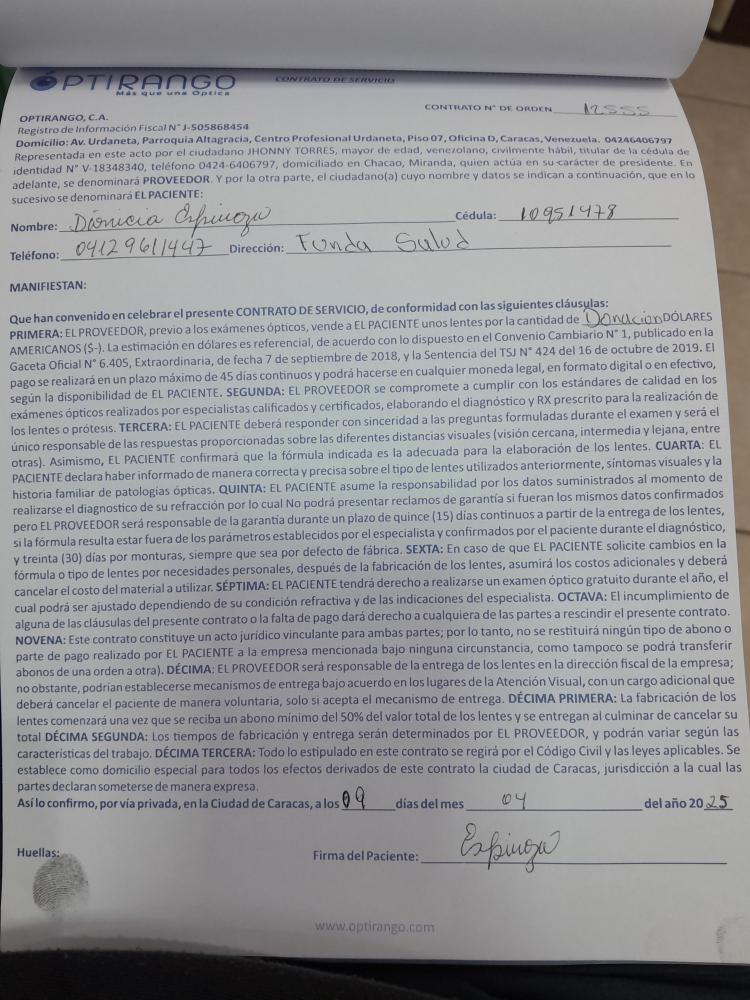 OPTIRANGO
Más que una Óptica
CONTRATO DE SERVICIO
CONTRATO N° DE ORDEN 12555
OPTIRANGO, C.A.
Registro de Información Fiscal N° J-505868454
Domicilio: Av. Urdaneta, Parroquia Altagracia, Centro Profesional Urdaneta, Piso 07, Oficina D, Caracas, Venezuela. 04246406797
Representada en este acto por el ciudadano JHONNY TORRES, mayor de edad, venezolano, civilmente hábil, titular de la cédula de
identidad N° V-18348340, teléfono 0424-6406797, domiciliado en Chacao, Miranda, quien actúa en su carácter de presidente. En
adelante, se denominará PROVEEDOR. Y por la otra parte, el ciudadano(a) cuyo nombre y datos se indican a continuación, que en lo
sucesivo se denominará EL PACIENTE:
Nombre: Dionicia Espinoza Cédula: 10951478
Teléfono: 04129611447 Dirección: Funda Salud
MANIFIESTAN:
Que han convenido en celebrar el presente CONTRATO DE SERVICIO, de conformidad con las siguientes cláusulas:
PRIMERA: EL PROVEEDOR, previo a los exámenes ópticos, vende a EL PACIENTE unos lentes por la cantidad de Donación DÓLARES
AMERICANOS ($-). La estimación en dólares es referencial, de acuerdo con lo dispuesto en el Convenio Cambiario N° 1, publicado en la
Gaceta Oficial N° 6.405, Extraordinaria, de fecha 7 de septiembre de 2018, y la Sentencia del TSJ N° 424 del 16 de octubre de 2019. El
pago se realizará en un plazo máximo de 45 días continuos y podrá hacerse en cualquier moneda legal, en formato digital o en efectivo,
según la disponibilidad de EL PACIENTE. SEGUNDA: EL PROVEEDOR se compromete a cumplir con los estándares de calidad en los
exámenes ópticos realizados por especialistas calificados y certificados, elaborando el diagnóstico y RX prescrito para la realización de
los lentes o prótesis. TERCERA: EL PACIENTE deberá responder con sinceridad a las preguntas formuladas durante el examen y será el
único responsable de las respuestas proporcionadas sobre las diferentes distancias visuales (visión cercana, intermedia y lejana, entre
otras). Asimismo, EL PACIENTE confirmará que la fórmula indicada es la adecuada para la elaboración de los lentes. CUARTA: EL
PACIENTE declara haber informado de manera correcta y precisa sobre el tipo de lentes utilizados anteriormente, síntomas visuales y la
historia familiar de patologías ópticas. QUINTA: EL PACIENTE asume la responsabilidad por los datos suministrados al momento de
realizarse el diagnostico de su refracción por lo cual No podrá presentar reclamos de garantía si fueran los mismos datos confirmados
pero EL PROVEEDOR será responsable de la garantía durante un plazo de quince (15) días continuos a partir de la entrega de los lentes,
si la fórmula resulta estar fuera de los parámetros establecidos por el especialista y confirmados por el paciente durante el diagnóstico,
y treinta (30) días por monturas, siempre que sea por defecto de fábrica. SEXTA: En caso de que EL PACIENTE solicite cambios en la
fórmula o tipo de lentes por necesidades personales, después de la fabricación de los lentes, asumirá los costos adicionales y deberá
cancelar el costo del material a utilizar. SÉPTIMA: EL PACIENTE tendrá derecho a realizarse un examen óptico gratuito durante el año, el
cual podrá ser ajustado dependiendo de su condición refractiva y de las indicaciones del especialista. OCTAVA: El incumplimiento de
alguna de las cláusulas del presente contrato o la falta de pago dará derecho a cualquiera de las partes a rescindir el presente contrato.
NOVENA: Este contrato constituye un acto jurídico vinculante para ambas partes; por lo tanto, no se restituirá ningún tipo de abono o
parte de pago realizado por EL PACIENTE a la empresa mencionada bajo ninguna circunstancia, como tampoco se podrá transferir
abonos de una orden a otra). DÉCIMA: EL PROVEEDOR será responsable de la entrega de los lentes en la dirección fiscal de la empresa;
no obstante, podrían establecerse mecanismos de entrega bajo acuerdo en los lugares de la Atención Visual, con un cargo adicional que
deberá cancelar el paciente de manera voluntaria, solo si acepta el mecanismo de entrega. DÉCIMA PRIMERA: La fabricación de los
lentes comenzará una vez que se reciba un abono mínimo del 50% del valor total de los lentes y se entregan al culminar de cancelar su
total DÉCIMA SEGUNDA: Los tiempos de fabricación y entrega serán determinados por EL PROVEEDOR, y podrán variar según las
características del trabajo. DÉCIMA TERCERA: Todo lo estipulado en este contrato se regirá por el Código Civil y las leyes aplicables. Se
establece como domicilio especial para todos los efectos derivados de este contrato la ciudad de Caracas, jurisdicción a la cual las
partes declaran someterse de manera expresa.
Así lo confirmo, por vía privada, en la Ciudad de Caracas, a los 09 días del mes 04 del año 2025
Huellas: Firma del Paciente: Espinoza
www.optirango.com